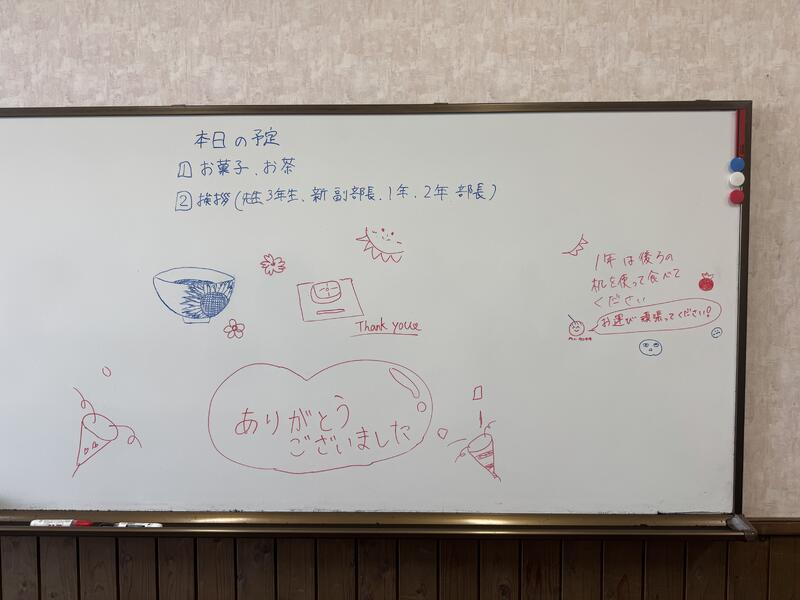 本日の予定
1 お菓子、お茶
2 挨拶(先生、3年生、新副部長、1年、2年 部長)
1年は後ろの
机を使って食べて
ください
お運び頑張ってください!
Thank you
ありがとう
ございました